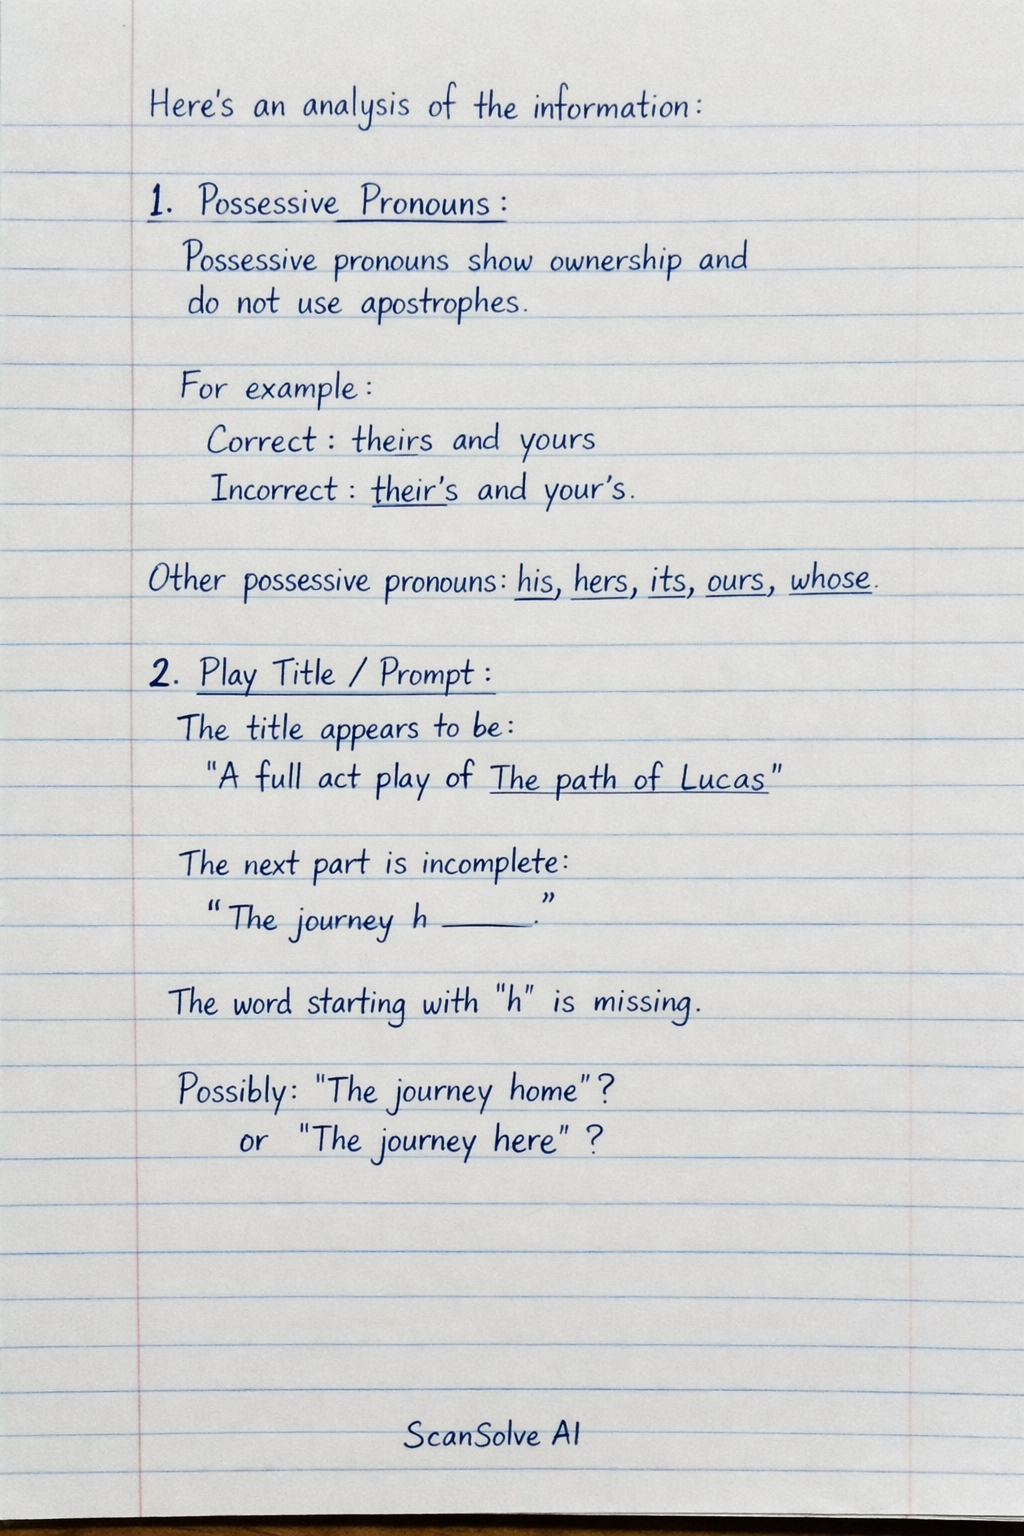 Here's an analysis of the information:
1. Possessive Pronouns:
Possessive pronouns show ownership and
do not use apostrophes.
For example:
Correct: theirs and yours
Incorrect: their's and your's.
Other possessive pronouns: his, hers, its, ours, whose.
2. Play Title / Prompt:
The title appears to be:
"A full act play of The path of Lucas"
The next part is incomplete:
"The journey h _____."
The word starting with "h" is missing.
Possibly: "The journey home"?
or "The journey here" ?
ScanSolve AI